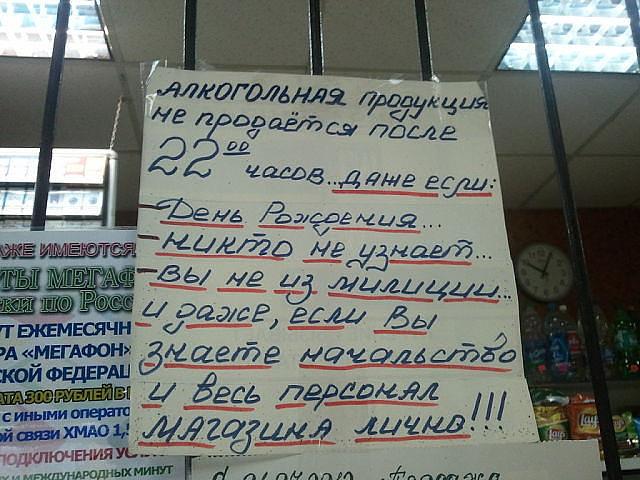 АЛКОГОЛЬНАЯ продукция
не продаётся после
22⁰⁰ часов... даже если:
- День Рождения...
- никто не узнает...
- вы не из милиции...
и даже, если Вы
знаете начальство
и весь персонал
МАГАЗИНА лично!!!
ЖЕ ИМЕЮТСЯ
ТЫ МЕГАФ
по Росс
ЕЖЕМЕСЯЧН
«МЕГАФОН»
СКОЙ ФЕДЕРАЦ
300 РУБЛЕЙ В
с иными операто
ой связи ХМАО 1,5
ПОДКЛЮЧЕНИЯ УСЛУ
И МЕЖДУНАРОДНЫХ МИНУТ
Lay's